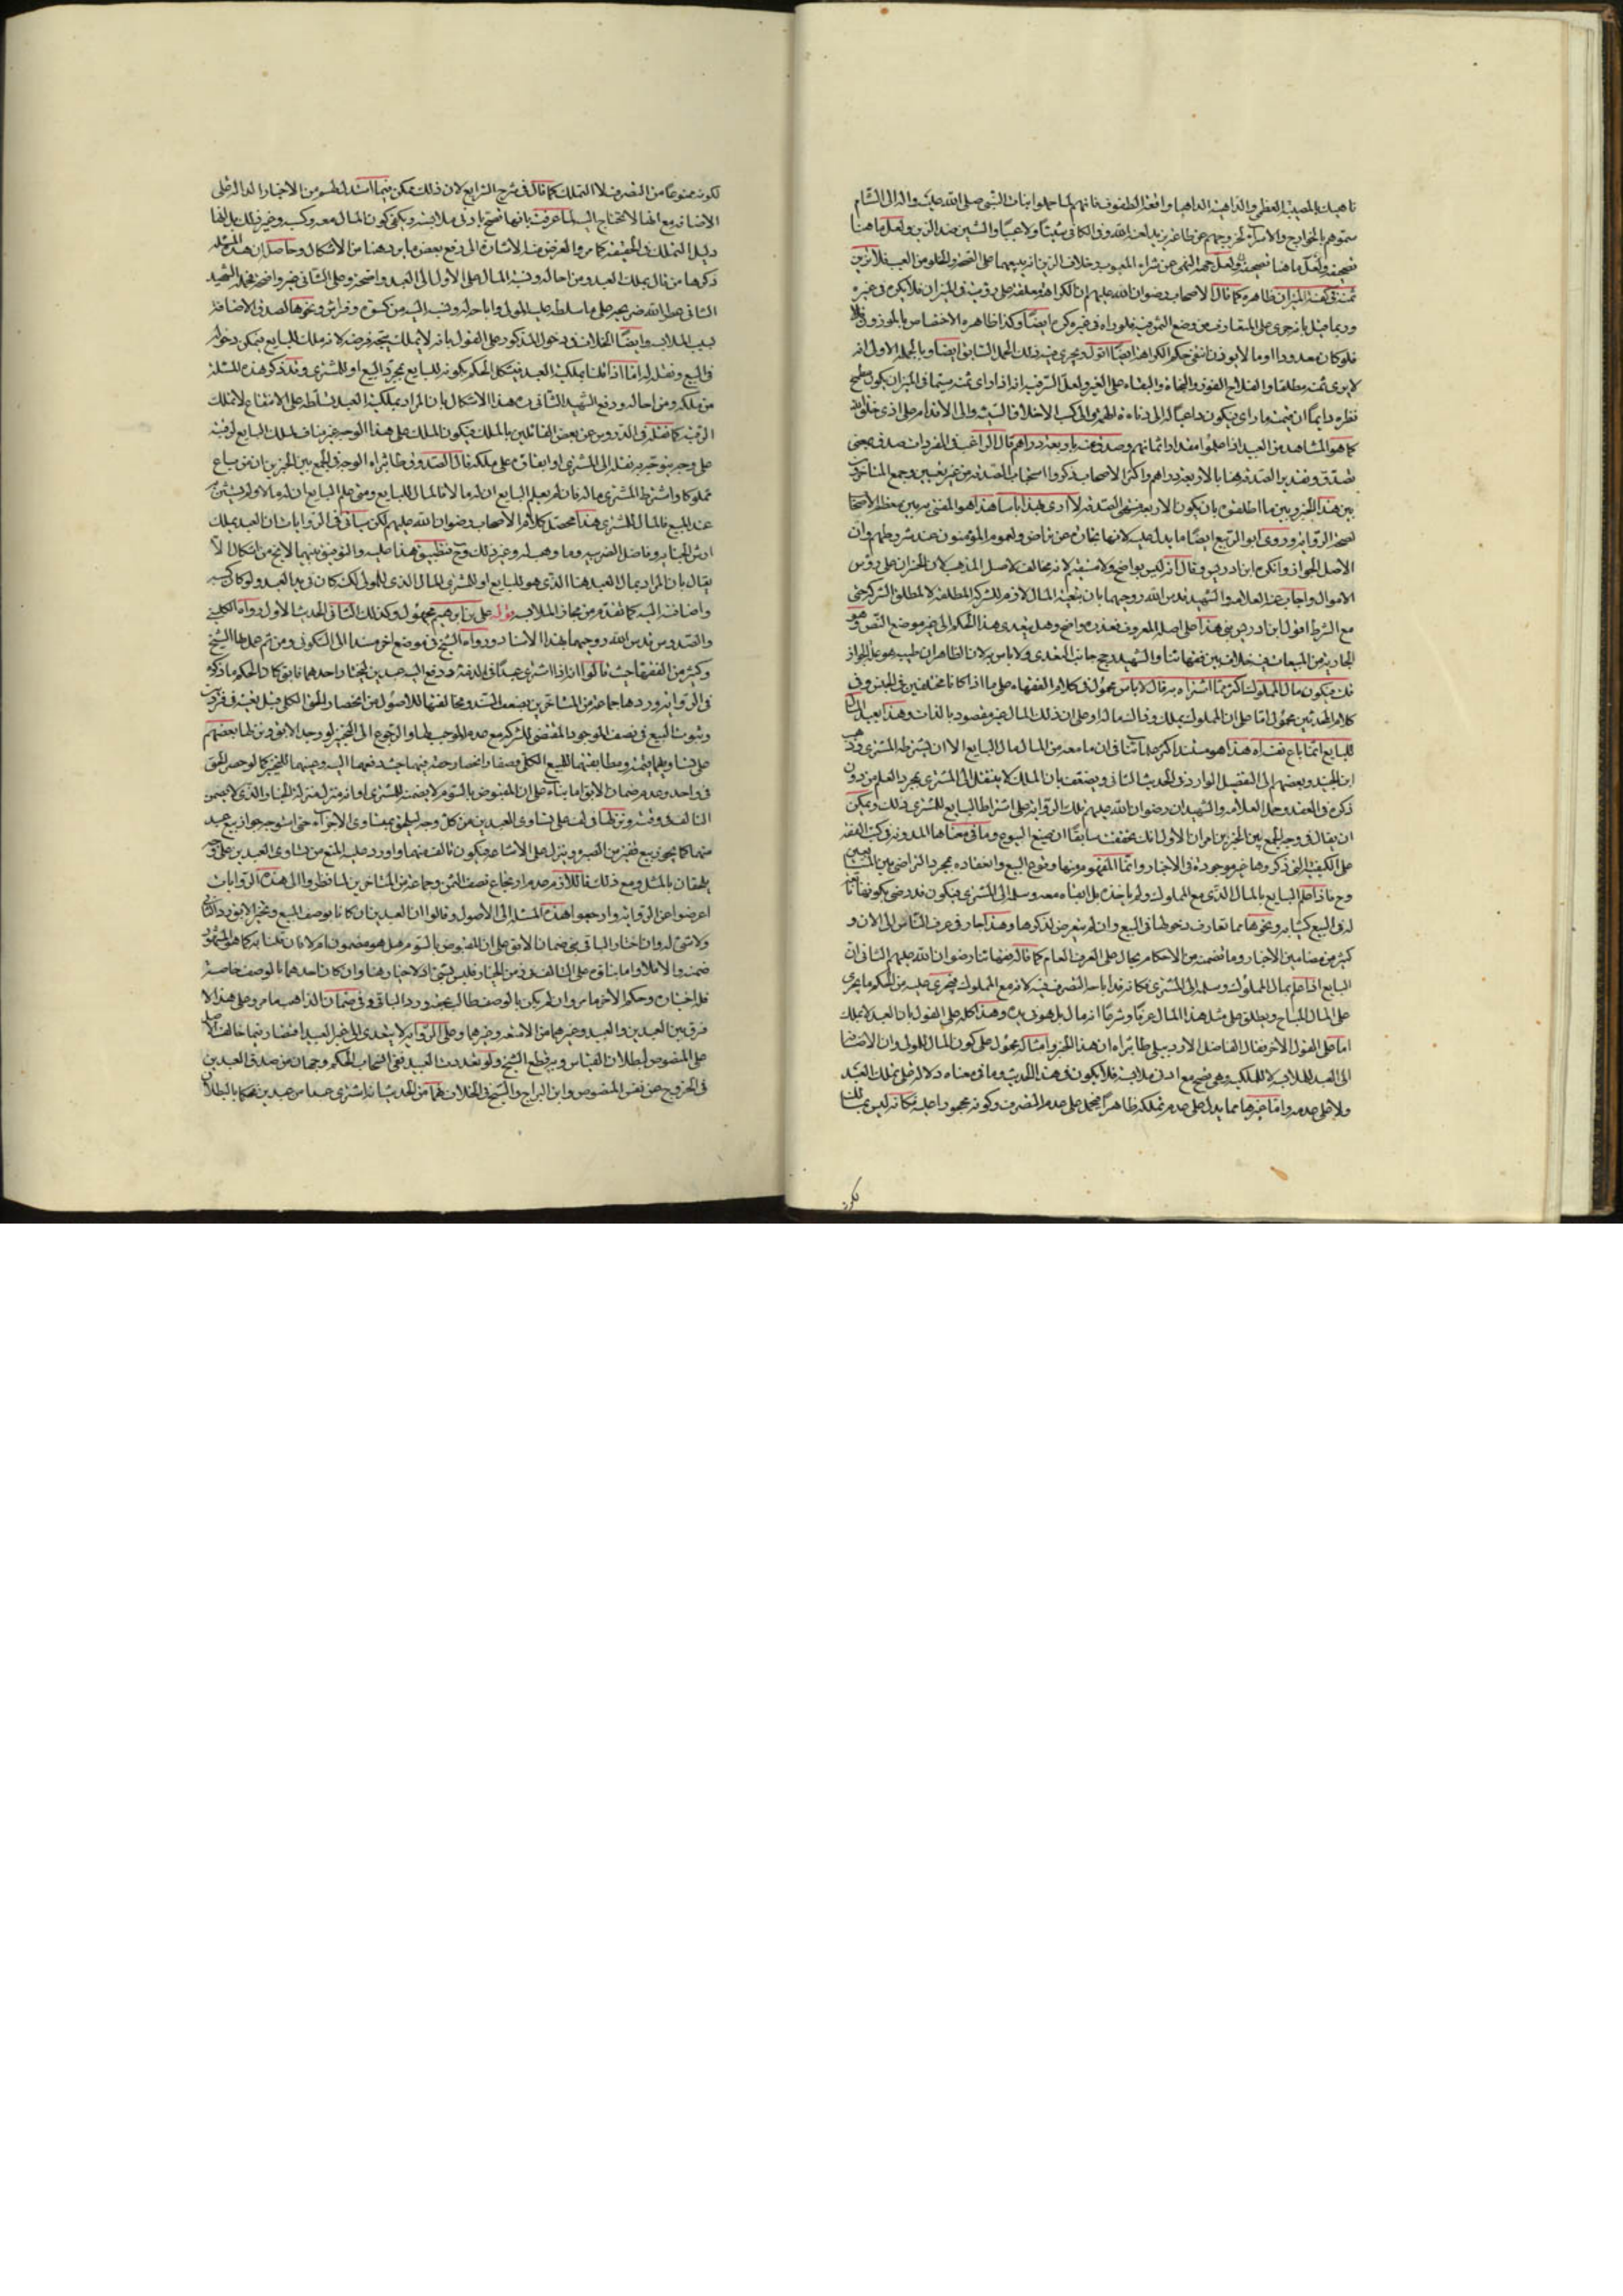 ناهيك بالمصيبة العظمى والداهية الدهياء واقعة الطفوف فانهم لما حملوا بنات النبي صلى الله عليه واله الى الشام
سموهم بالخوارج والاسراء لخروجهم عن طاعة يزيد لعنه الله وفي الكافي شيبا ولا عيبا والشين ضد الزين ولعل ما هنا
تصحيف ولعل جهة النهي عن شراء المعيوب وخلاف الزين
ثمنه في كفة الميزان ظاهره كما قال الاصحاب رضوان الله عليهم ان الكراهة معلقة على رؤيته في الميزان فلا يكره في غيره
وربما قيل بانه جرى على المتعارف من وضع الثمن فيه فلو راه في غيره كره ايضا وكذا ظاهره الاختصاص بالموزون فلا
فلو كان معدودا او ما لا يوزن انتفى حكم الكراهة ايضا اقول ويجري فيه ذلك الحمل السابق ايضا وبالجملة الاولى انه
لا يرى ثمنه مطلقا والفلاح الفوز والنجاة والبقاء على الخير ولعل السر فيه انه اذا راى ثمنه سيما في الميزان يكون مطمح
نظره دايما ان قيمته ما راى فيكون داعيا له الى
كما هو المشاهد من العبيد اذا علموا مقدار اثمانهم وصدق عنه باربعة دراهم قال الراغب في المفردات صدق بمعنى
تصدق وتقدير الصدقة هنا بالاربعة دراهم واكثر الاصحاب ذكروا استحباب الصدقة من غير تعيين وجمع المتاخرون
بين هذا الخبر وبين ما اطلقوه بان يكون الاربعة منتهى الصدقة لا ارى بهذا باسا هذا هو المفتى به بين معظم الاصحاب
لصحة الرواية وروى ابو الربيع ايضا ما يدل عليه لانها تجارة عن تراض ولعموم المؤمنون عند شروطهم وان
الاصل الجواز وانكره ابن ادريس وقال انه ليس بواضح ولا مستقيم لانه مخالف لاصل المذهب لان الخسران على رؤس
الاموال واجاب عنه العلامة والشهيد قدس الله روحيهما بان تبعية المال لازم للشركة المطلقة لا لمطلق الشركة حتى
مع الشرط اقول ابن ادريس بنى هذا على اصله المعروف فعذره واضح وهل يتعدى هذا الحكم الى غير موضع النص وهو
الجارية من المبيعات فيه خلاف بين فقهائنا والشهيد رجح جانب التعدي ولا باس به لان الظاهر ان طيبه هو علة الجواز
قلت فيكون مال المملوك اكثر مما اشتراه به قال لا باس محمول في كلام الفقهاء على ما اذا كانا مختلفين في الجنس وفي
كلام المحدثين محمول اما على ان المملوك يملك وفاضل ماله او على ان ذلك المال غير مقصود بالذات وهذا بعيد المال
للبايع انما باع نفسه هذا هو مستند اكثر علمائنا في ان ما معه من المال مال البايع الا ان يشترطه المشتري وذهب
ابن الجنيد وبعضهم الى التفصيل الوارد في الحديث الثاني ويضعف بان الملك لا ينتقل الى المشتري بمجرد العلم من دون
ذكره في العقد وحمل العلامة والشهيدان رضوان الله عليهم تلك الرواية على اشتراط البايع للمشتري ذلك ويمكن
ان يقال في وجه الجمع بين الخبرين امران الاول انك تحققت سابقا ان صيغ البيوع وما في معناها المدونة في كتب الفقه
على الكيفية التي ذكروها غير موجودة في الاخبار وانما المفهوم منها وقوع البيع وانعقاده بمجرد التراضي بين المتبايعين
وح فاذا علم البايع بالمال الذي مع المملوك ولم ياخذه بل ابقاه معه وسلمه الى المشتري فيكون قد رضي بكونها تابعة
له في البيع كثيابه ونحوها مما تعارف دخولها في البيع وان لم يتعرض لذكرها وهذا جار في عرف الناس الى الان و
كثير من مضامين الاخبار وما تضمنه من الاحكام يحال على العرف العام كما قاله فقهائنا رضوان الله عليهم الثاني ان
البايع اذا علم بمال المملوك وسلمه الى المشتري فكانه قد اباح له التصرف فيه لانه مع المملوك فيجري عليه من الحكم ما يجري
على المال المباح ويطلق على مثل هذا المال عرفا وشرعا انه مال بل هو في يده وهذا كله على القول بان العبد لا يملك
اما على القول الاخر فقال الفاضل الاردبيلي طاب ثراه ان هذا الخبر وامثاله محمول على كون المال للمولى وان الاضافة
الى العبد للملابسة لا للملكية وهي تصح مع ادنى ملابسة فلا يكون في هذا الحديث وما في معناه دلالة على تملك العبد
ولا على عدمه واما غيرها مما يدل على عدم تملكه ظاهرا فيحمل على عدم التصرف وكونه محجورا عليه فكانه ليس بمالك
لكونه
لكونه ممنوعا من التصرف لا التملك كما قال في شرح الشرايع لان ذلك ممكن
الاضافة مع انها لا تحتاج اليه لما عرفت بانها تصح بادنى ملابسة ويكفي كون المال معه وكسبه وغير ذلك
دليل التملك في الحقيقة كما مر والغرض منه الاشارة الى دفع بعض ما يرد هنا من الاشكال وحاصله ان هذه المسئلة
ذكرها من قال بملك العبد ومن احاله ونسبة المال على الاول الى العبد واضحة وعلى الثاني غير واضحة فحمله الشهيد
الثاني عطر الله ضريحه على ما سلطه عليه المولى واباحه له ونسبه اليه من كسوة وفراش ونحوها لصدق الاضافة
بسبب الملابسة وايضا الخلاف في دخول المذكور على القول بانه لا يملك يتجه فرضه لانه ملك للبايع فيمكن دخوله
في البيع ونقله له اما اذا قلنا بملكية العبد فيشكل الحكم بكونه للبايع بمجرد البيع او للمشتري وقد ذكر هذه المسئلة
من ملكه ومن احاله ودفع الشهيد الثاني ره هذا الاشكال بان المراد بملكية العبد تسلطه على الانتفاع لا ملك
الرقبة كما نقله في الدروس عن بعض القائلين بالملك فيكون الملك على هذا الوجه غير مناف لملك البايع لرقبته
على وجه يتوجه به نقله الى المشتري او ابقائه على ملكه قال الصدوق طاب ثراه الوجه في الجمع بين الخبرين ان من باع
مملوكا واشترط المشتري ماله فان لم يعلم البايع ان له مالا فالمال للبايع ومتى علم البايع ان له مالا ولم يستثن به
عند البيع فالمال للمشتري هذا محصل كلام الاصحاب رضوان الله عليهم لكن سياتي في الروايات ان العبد يملك
ارش الجناية وفاضل الضريبة وما وهب له وغير ذلك وح فتطبيق هذا عليه والتوفيق بينهما لا يخ من اشكال الا
يقال بان المراد بمال العبد هنا الذي هو للبايع او للمشتري المال الذي للمولى لكنه كان في يد العبد ولو كان كسبه
واضافته اليه كما تقدم من مجاز الملابسة قوله علي بن ابرهيم مجهول وكذلك الثاني الحديث الاول رواه الكليني
والصدوق قدس الله روحيهما بهذا الاسناد ورواه الشيخ في موضع اخر مسندا الى السكوني ومن ثم عمل بها الشيخ
وكثير من الفقهاء حيث قالوا انه اذا اشترى عبدا في الذمة ودفع اليه عبدين ليختار احدهما فابق كان الحكم ما ذكره
في الرواية وردها جماعة من المتاخرين بضعف السند ومخالفتها للاصول من انحصار الحق الكلي قبل تعينه في فردين
وثبوت البيع في نصف الموجود المقتضي للشركة مع عدم الموجب لها والرجوع الى التخيير لو وجد الابق ونزلها بعضهم
على تساويهما قيمة ومطابقتهما للمبيع الكلي وصفا وانحصار حقه فيهما حيث دفعهما اليه وعينهما للتخيير كما لو حصر الحق
في واحد وعدم ضمان الابق اما بناء على ان المقبوض بالسوم لا يضمنه المشتري او انه منزل منزلة الخيار والذي لا يضمن
التالف في وقته ونزلها في لف على تساوي العبدين من كل وجه ليلحق بمتساوي الاجزاء حتى استوجه جواز بيع عبد
منهما كما يجوز بيع قفيز من الصبرة وينزل على الاشاعة فيكون تالف منهما واورد عليه المنع من تساوي العبدين على وجه
يلحقان بالمثل ومع ذلك فاللازم عدم ارتجاع نصف الثمن وجماعة من المتاخرين لما نظروا الى هذه الروايات
اعرضوا عن الرواية وارجعوا هذه المسئلة الى الاصول وقالوا ان العبدين ان كانا بوصف المبيع
ولا شئ له وان اختار الباقي بنى ضمان الابق على ان المقبوض بالسوم هل هو مضمون ام لا فان قلنا به كما هو المشهور
ضمنه والا فلا واما بناؤه على التالف في زمن الخيار فليس بشئ اذ لا خيار هنا وان كان احدهما بالوصف خاصة
فله اختياره وحكم الاخر ما مر وان لم يكن بالوصف طالب بحقه ورد الباقي وفي ضمان الذاهب ما مر وعلى هذا لا
فرق بين العبدين والعبيد وغيرهما من الامتعة وغيرها وعلى الرواية لا يتعدى الى غير العبيد اقتصارا فيما خالف الاصل
على المنصوص لبطلان القياس وبه قطع الشيخ ولو تعددت العبيد ففي انسحاب الحكم وجهان من صدق العبدين
في الخروج عن نفس المنصوص وابن البراج والشيخ في الخلاف فهما من الحديث انه اشترى عبدا من عبدين فحكما بالبطلان